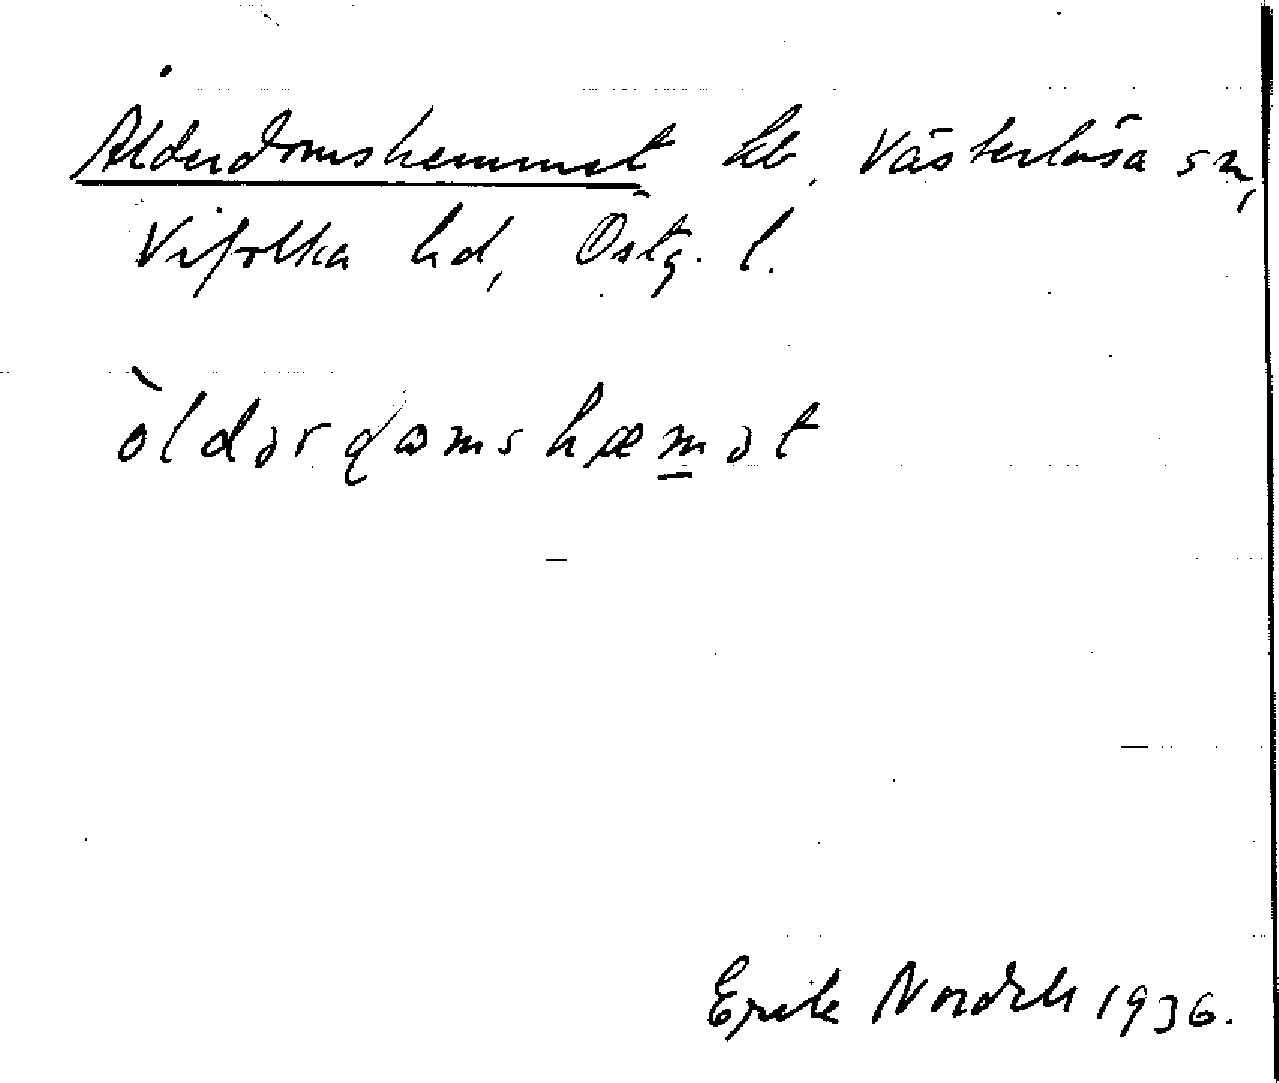 Ålderdomshemmet lb. Västerlösa sn,
Vifolka hd, Östg. l.
òldərdωmshæmət
Erik Nordell 1936.